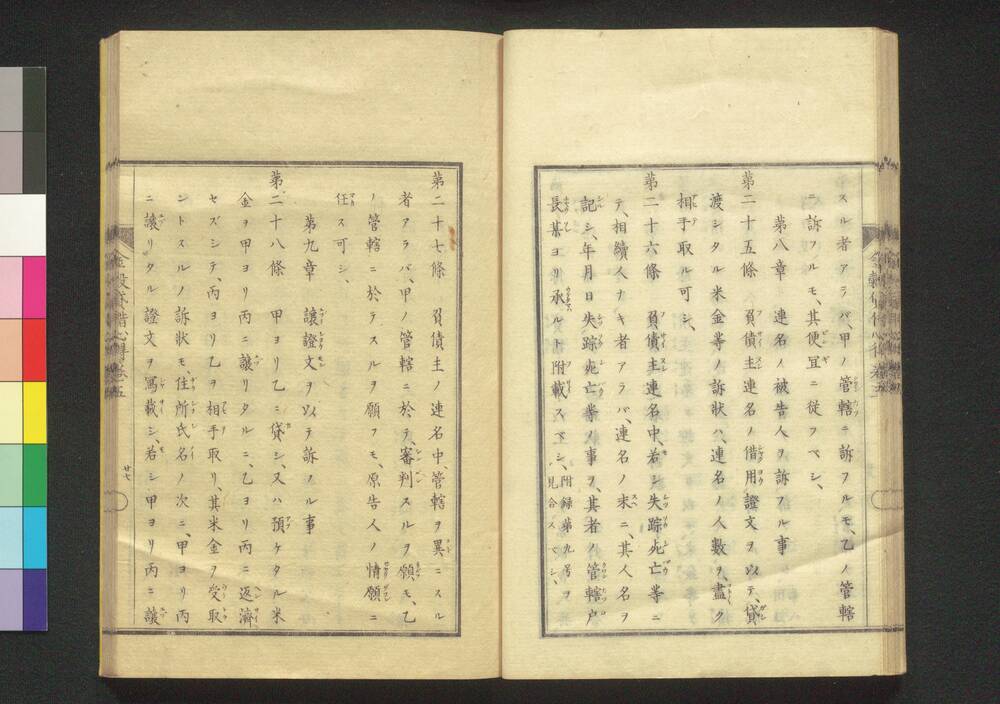 スル者アラバ、甲ノ管轄ニ訴フルモ、乙ノ管轄
ニ訴フルモ、其便宜ニ從フベシ、
第八章　連名ノ被告人ヲ訴フル事
第二十五條　負債主連名ノ借用證文ヲ以テ、貸
渡シタル米金等ノ訴狀ハ、連名ノ人數ヲ、盡ク
相手取ル可シ、
第二十六條　負債主連名中、若シ失踪死亡等ニ
テ、相續人ナキ者アラバ、連名ノ末ニ、其人名ヲ
記シ、年月日失踪死亡等ノ事ヲ、其者ノ管轄戸
長某ヨリ承ルト附載スベシ、附錄第九号ヲ
見合スベシ、
第二十七條　負債主ノ連名中、管轄ヲ異ニスル
者アラバ、甲ノ管轄ニ於テ、審判スルヲ願モ、乙
ノ管轄ニ於テスルヲ願フモ、原告人ノ情願ニ
任ス可シ、
第九章　讓證文ヲ以テ訴ノル事
第二十八條　甲ヨリ乙ニ貸シ、又ハ預ケタル米
金ヲ甲ヨリ丙ニ讓リタルニ、乙ヨリ丙ニ返濟
セズシテ、丙ヨリ乙ヲ相手取リ、其米金ヲ受取
ントスルノ訴狀モ、住所氏名ノ次ニ、甲ヨリ丙
ニ讓リタル證文ヲ寫載シ、若シ甲ヨリ丙ニ讓
廿七